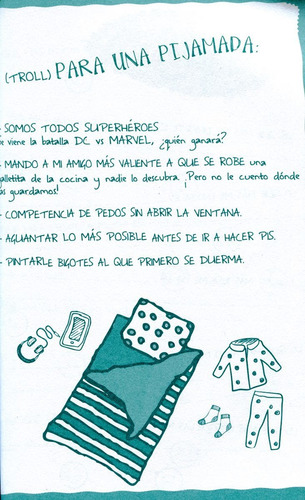 (TROLL) PARA UNA PIJAMADA:
- SOMOS TODOS SUPERHÉROES
e viene la batalla DC vs MARVEL, ¿quién ganará?
- MANDO A MI AMIGO MÁS VALIENTE A QUE SE ROBE una
galletita de la cocina y nadie lo descubra. ¡Pero no le cuento dónde
as guardamos!
- COMPETENCIA DE PEDOS SIN ABRIR LA VENTANA.
- AGUANTAR LO MÁS POSIBLE ANTES DE IR A HACER PIS.
- PINTARLE BIGOTES AL QUE PRIMERO SE DUERMA.